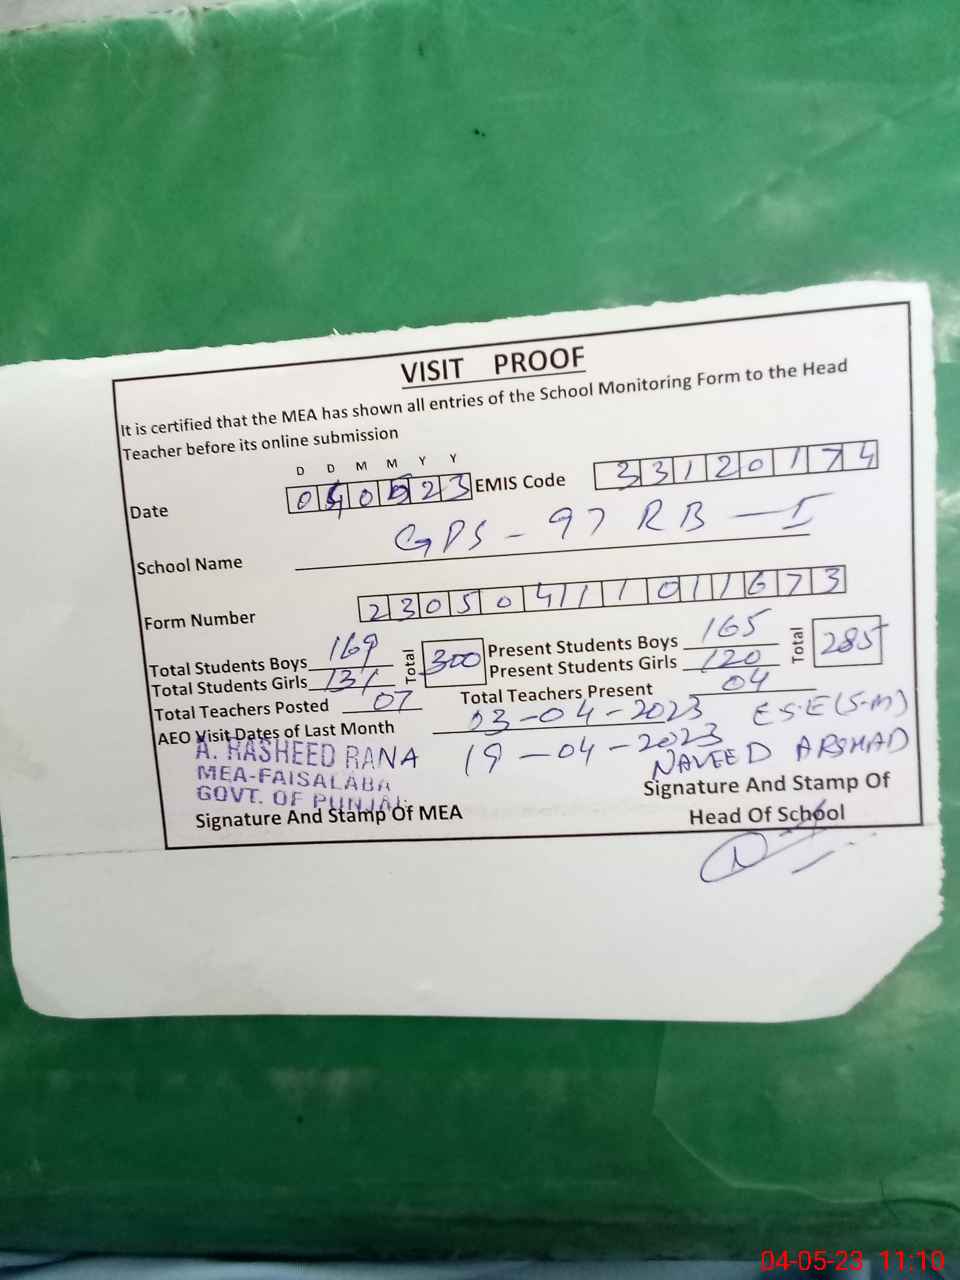 VISIT PROOF
It is certified that the MEA has shown all entries of the School Monitoring Form to the Head
Teacher before its online submission
D D M M Y Y
Date 040523 EMIS Code 33120174
School Name GPS - 97 RB - I
Form Number 230504111011673
Total Students Boys 169 Total 300 Present Students Boys 165 Total 285
Total Students Girls 131 Present Students Girls 120
Total Teachers Posted 07 Total Teachers Present 04
AEO Visit Dates of Last Month 03-04-2023 E.S.E (S-M)
A. RASHEED RANA 19-04-2023 NAVEED ARSHAD
MEA-FAISALABA
GOVT. OF PUNJAB
Signature And Stamp Of MEA
Signature And Stamp Of
Head Of School
04-05-23 11:10